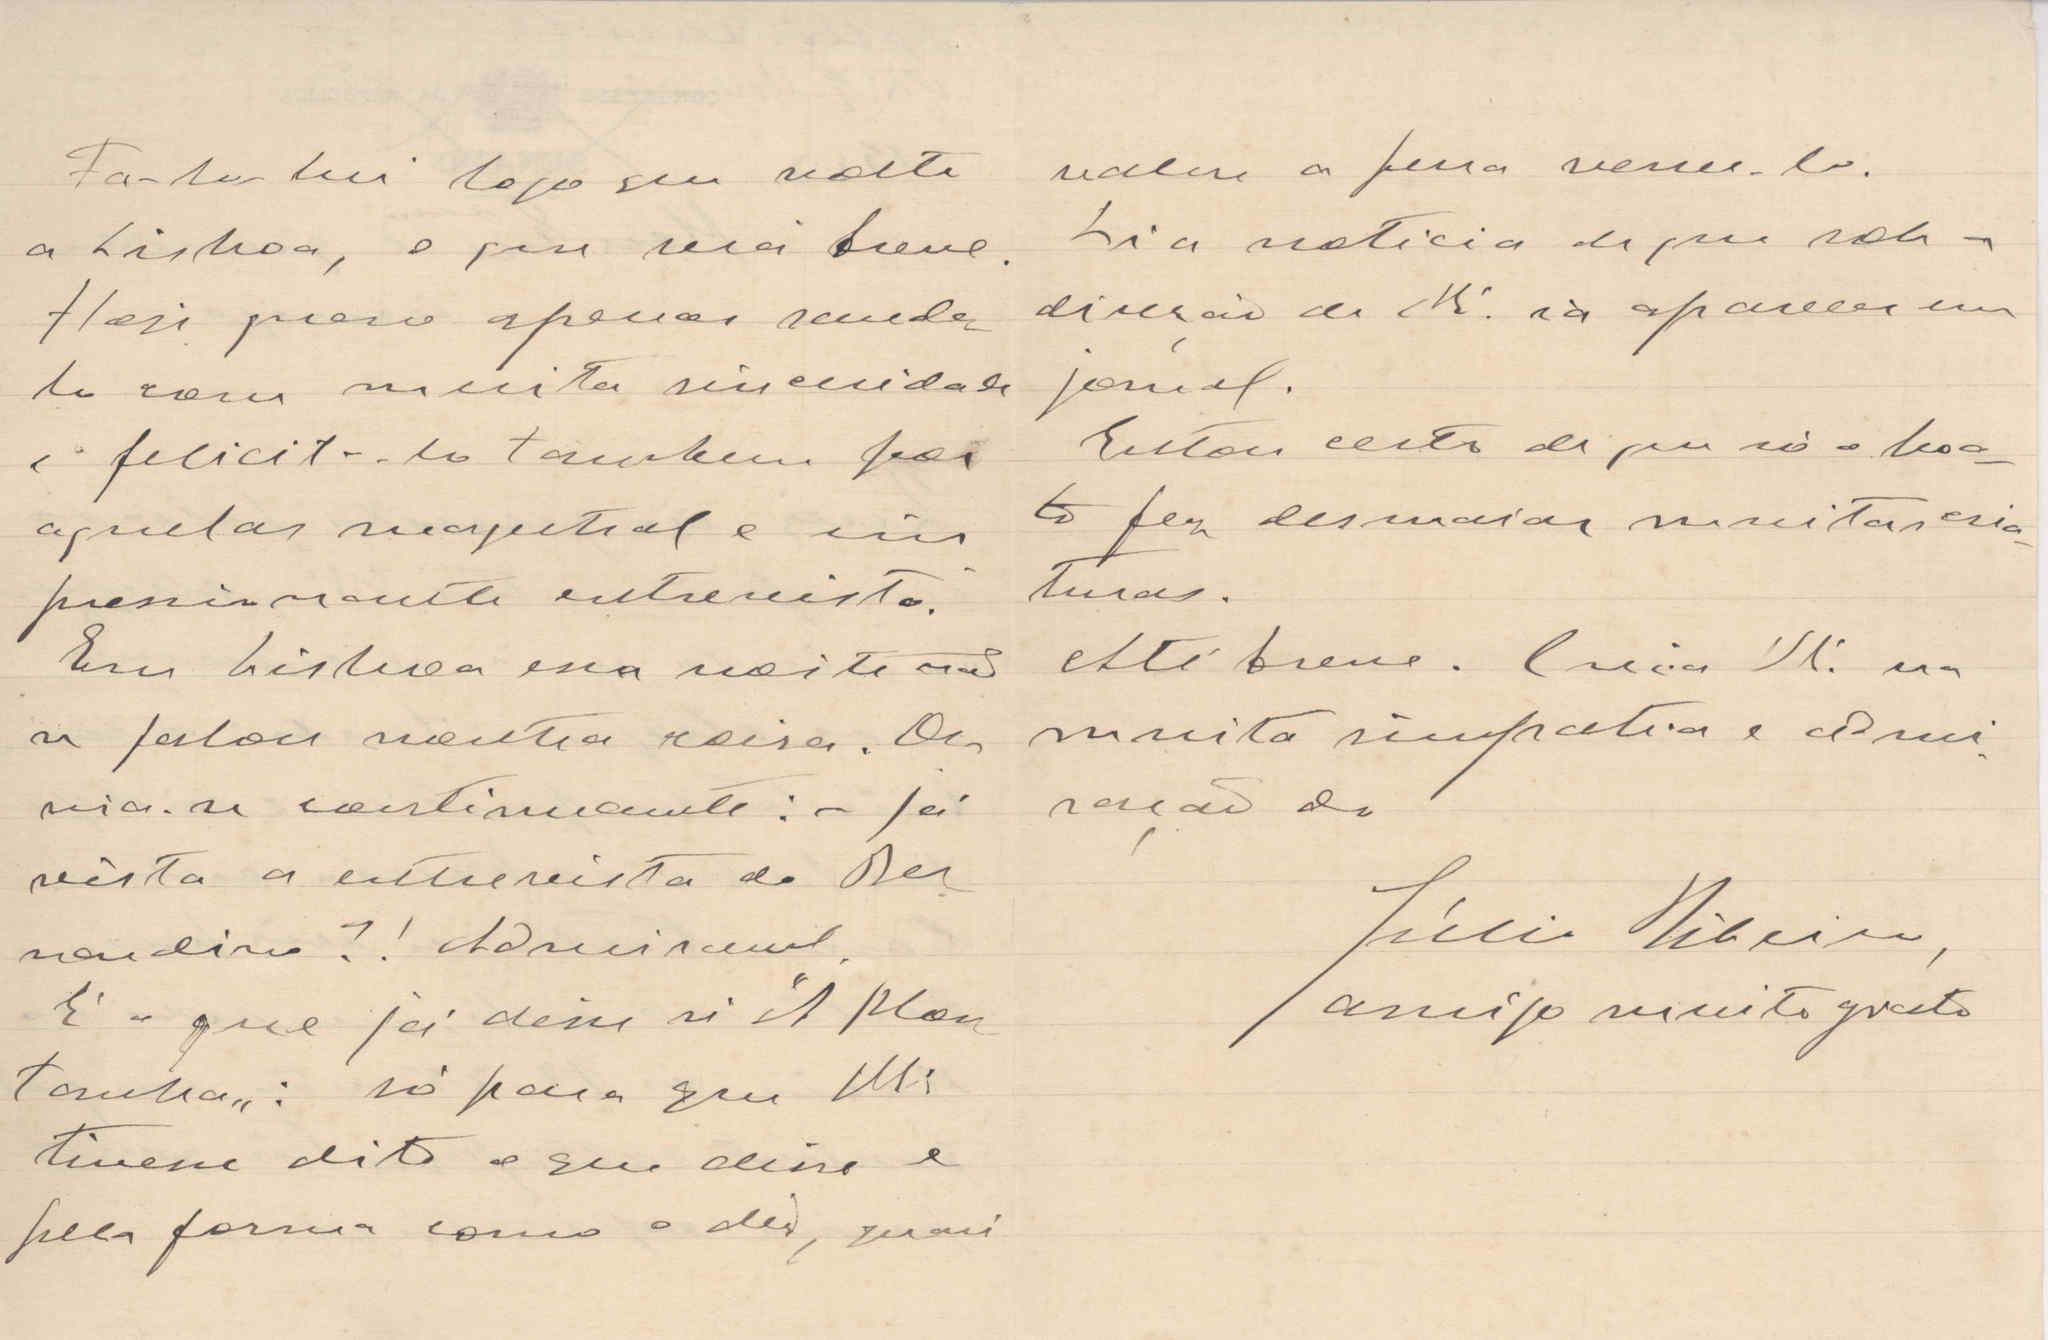 Fa-lo-hei logo que volte
a Lisboa, o que será breve.
Hoje quero apenas sauda-
lo com muita sinceridade
e felicit-lo tambem por
aquelas magistral e im
pressionante entrevista.
Em Lisboa essa noite não
se falou noutra coisa. Ou
via-se constinuamente: - já
vista a entrevista do Ber
nardino?! Admiravel.
E o que já disse n' "A Mon
tanha": só para que V.
tivesse dito o que disse e
pela forma como o diz, quasi
valeu a pena vence-lo.
Li a noticia de que sob a
direção de V. ia aparecer um
jornal.
Estou certo de que só o boa-
to fez desmaiar muitas cria-
turas.
Até breve. Creia V. na
muita simpatia e admi-
ração do
Júlio Ribeiro,
amigo muito grato